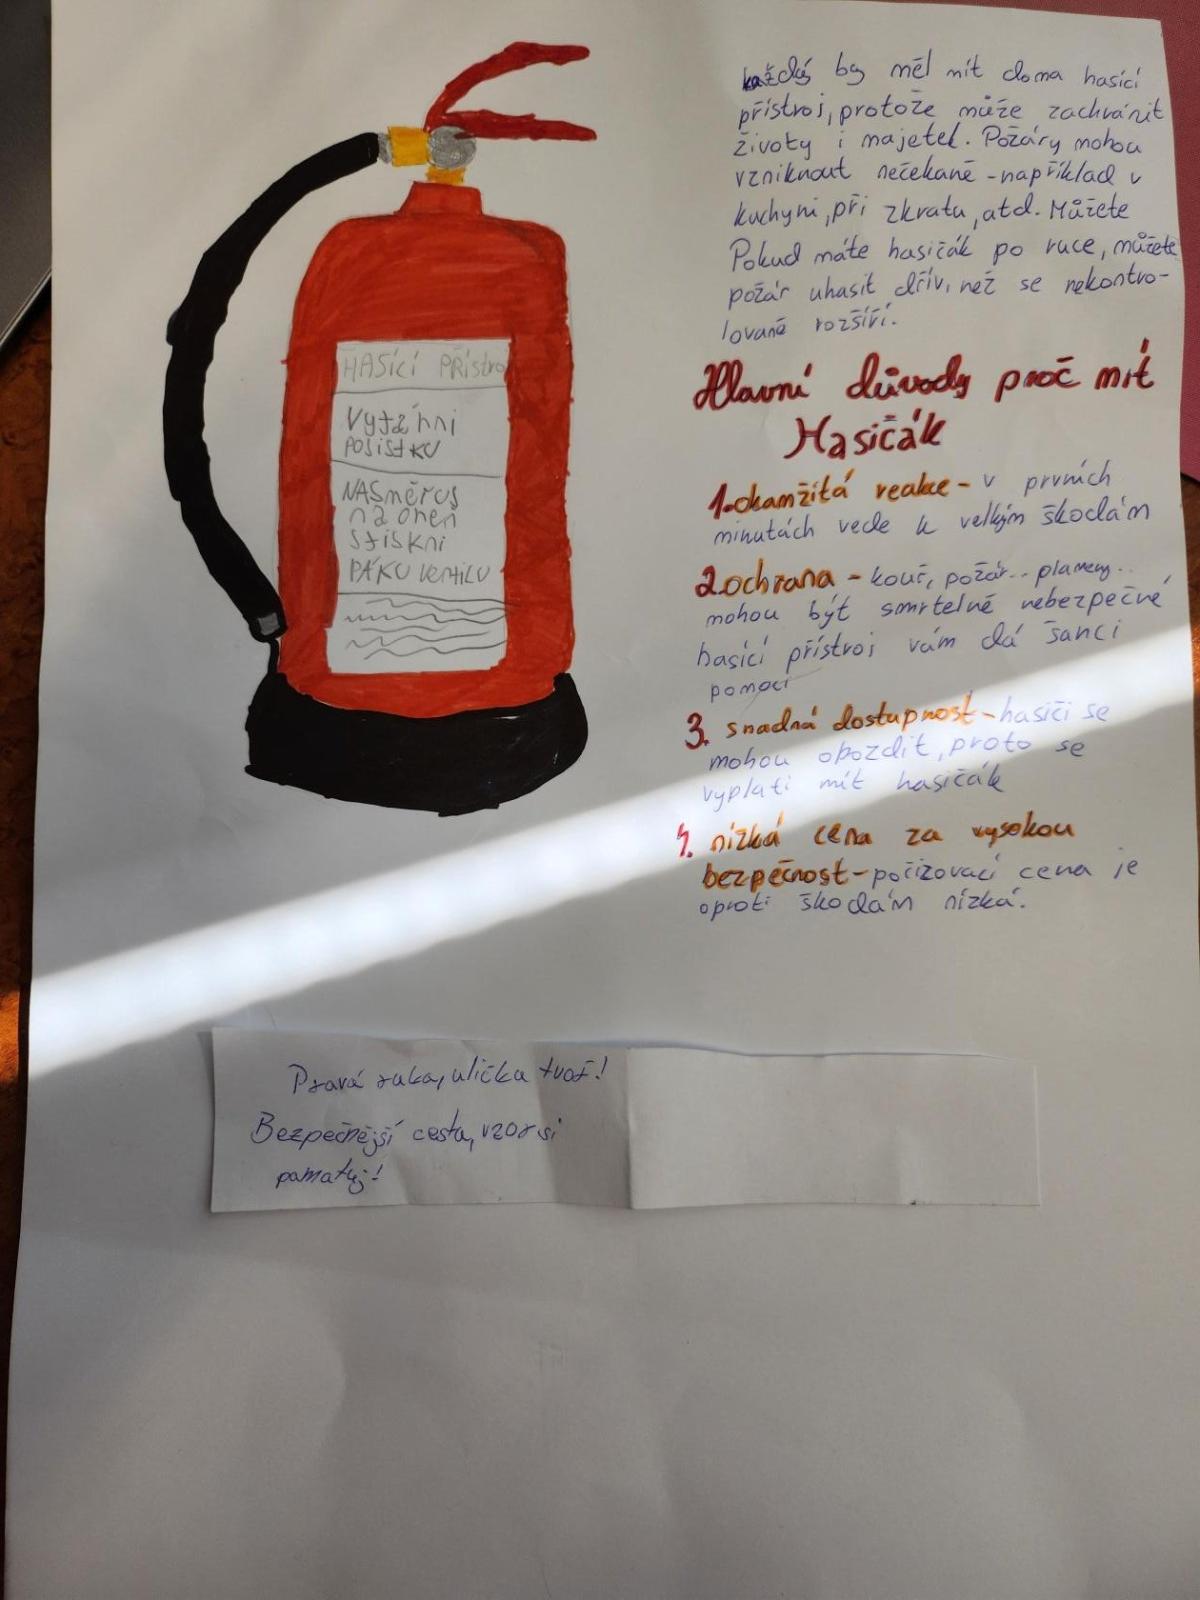 HASÍCÍ PŘístro
Vytáhni
POJISTKU
NASměruj
na oheň
stiskni
PÁKU VENTILU
každý by měl mít doma hasící
přístroj, protože může zachránit
životy i majetek. Požáry mohou
vzniknout nečekaně - například v
kuchyni, při zkratu, atd. Můžete
Pokud máte hasičák po ruce, můžete
požár uhasit dřív, než se nekontro-
lovaně rozšíří.
Hlavní důvody proč mít
Hasičák
1. okamžitá reakce - v prvních
minutách vede k velkým škodám
2. ochrana - kouř, požár.. plameny..
mohou být smrtelně nebezpečné
hasící přístroj vám dá šanci
pomoci
3. snadná dostupnost - hasiči se
mohou opozdit, proto se
vyplatí mít hasičák
4. nízká cena za vysokou
bezpečnost - pořizovací cena je
oproti škodám nízká.
Pravá ruka, ulička tvoř!
Bezpečnější cesta, vzor si
pamatuj!